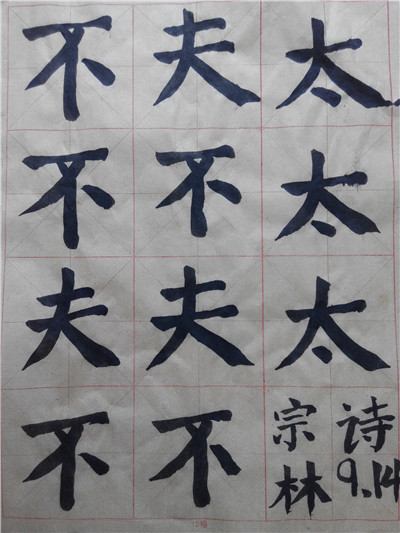 不夫太
不不太
夫夫太
不不
宗诗
林9.14